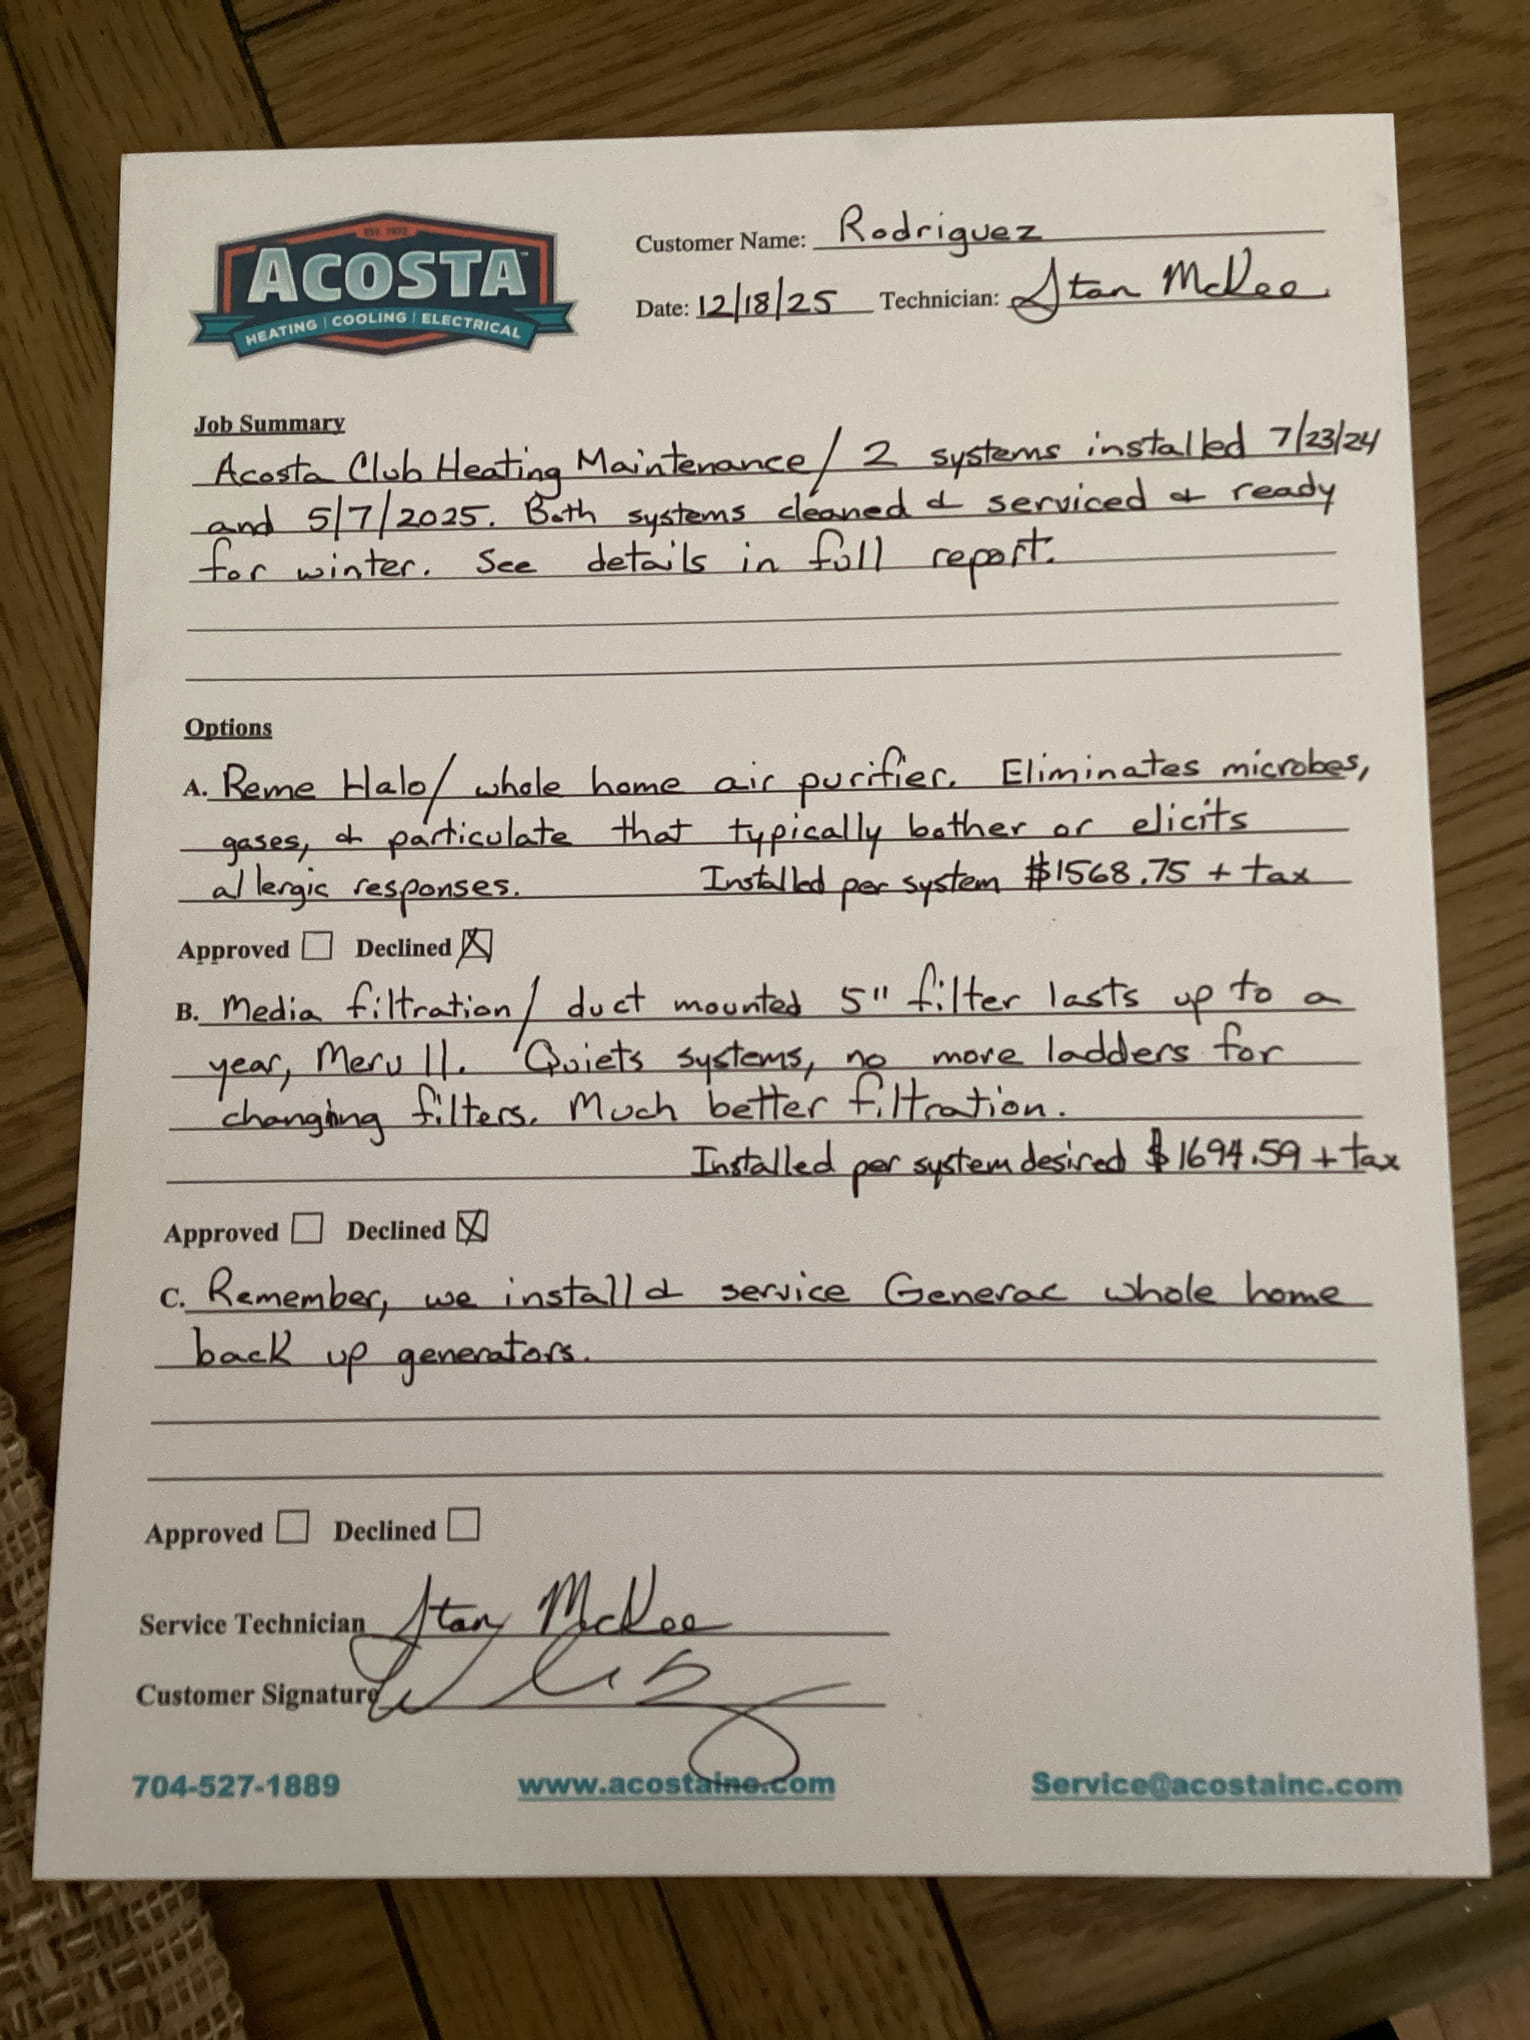 EST. 1972
ACOSTA™
HEATING | COOLING | ELECTRICAL
Customer Name: Rodriguez
Date: 12/18/25 Technician: Stan McKee
Job Summary
Acosta Club Heating Maintenance / 2 systems installed 7/23/24
and 5/7/2025. Both systems cleaned & serviced & ready
for winter. See details in full report.
Options
A. Reme Halo / whole home air purifier. Eliminates microbes,
gases, & particulate that typically bother or elicits
allergic responses. Installed per system $1568.75 + tax
Approved ☐ Declined ☒
B. Media filtration / duct mounted 5" filter lasts up to a
year, Merv 11. Quiets systems, no more ladders for
changing filters. Much better filtration.
Installed per system desired $1694.59 + tax
Approved ☐ Declined ☒
C. Remember, we install & service Generac whole home
back up generators.
Approved ☐ Declined ☐
Service Technician Stan McKee
Customer Signature
704-527-1889 www.acostainc.com Service@acostainc.com